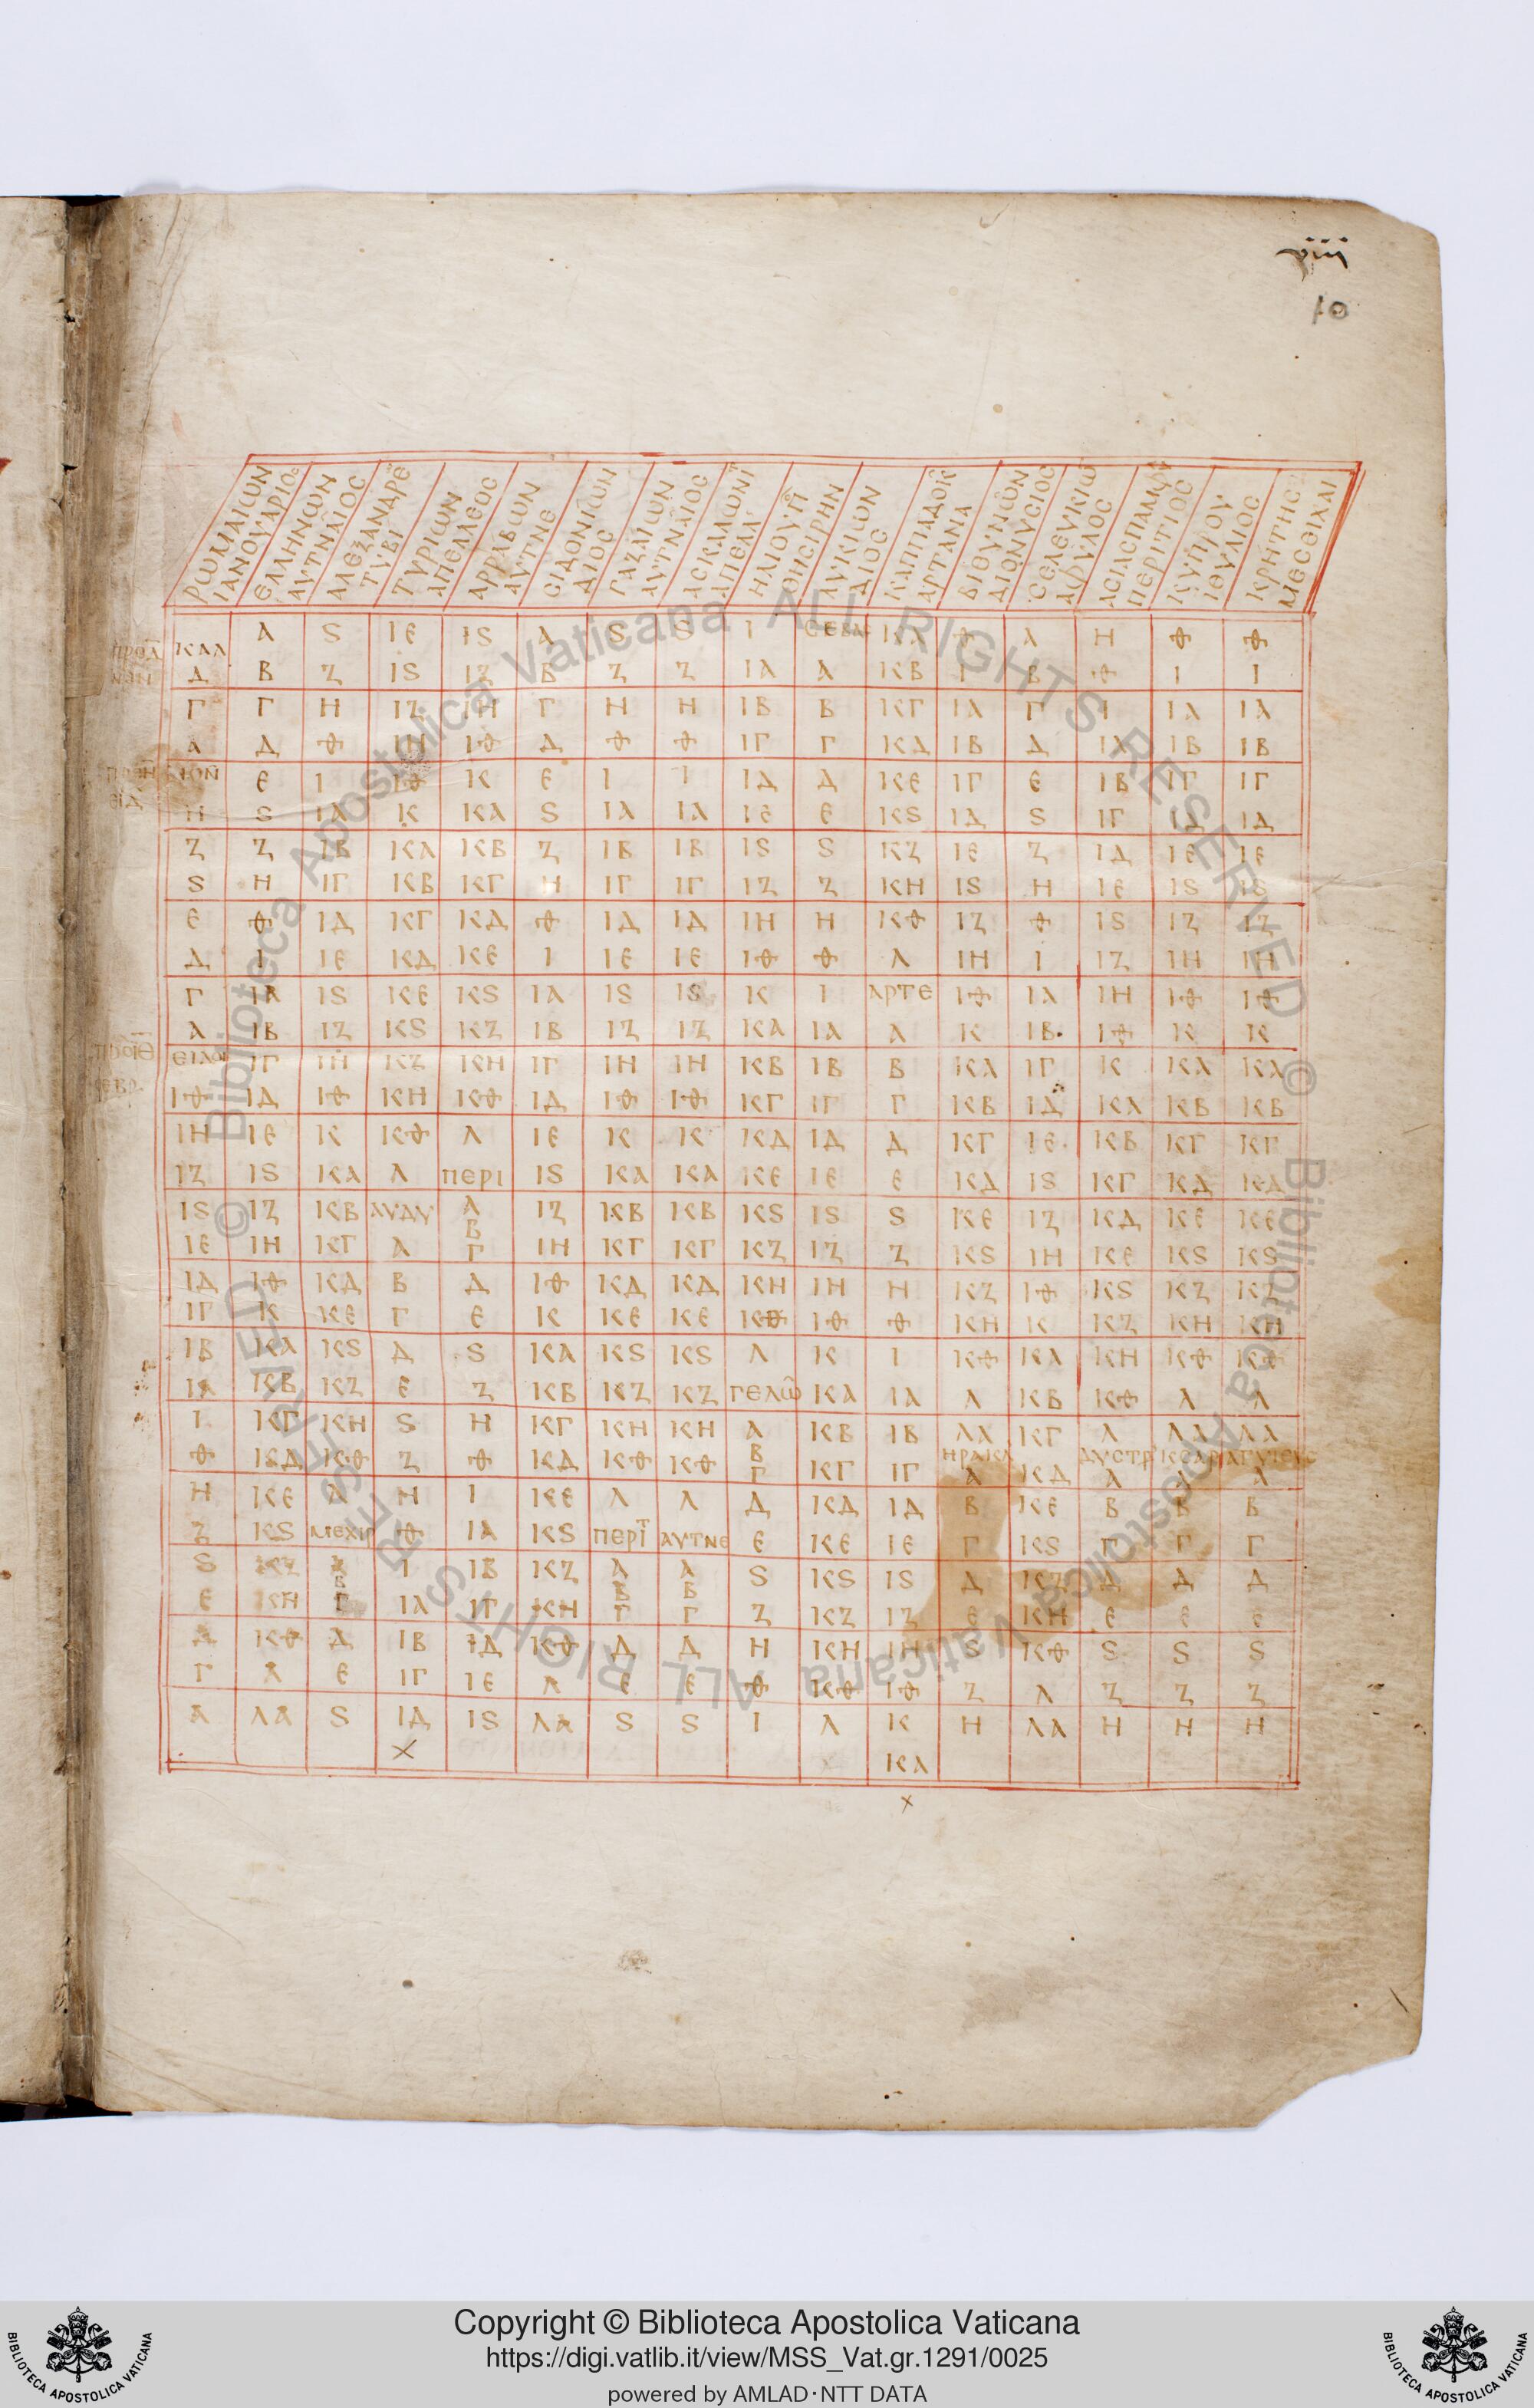 ῑῑῑ
10
ΡΩΜΑΙΩΝ ΙΑΝΟΥΑΡΙΟϹ
ΕΛΛΗΝΩΝ ΑΥΤΝΑΙΟϹ
ΑΛΕΞΑΝΔΡΕ ΤΥΒΙ
ΤΥΡΙΩΝ ΑΠΕΛΛΕΟϹ
ΑΡΡΑΒΩΝ ΑΥΤΝΕ
ϹΙΔΟΝΙΩΝ ΔΙΟϹ
ΓΑΖΑΙΩΝ ΑΥΤΝΑΙΟϹ
ΑϹΚΑΛΩΝΙΤ ΑΠΕΛΛ
ΗΛΙΟΥΠ ΘΗϹΙΡΗΝ
ΛΥΚΙΩΝ ΔΙΟϹ
ΚΑΠΠΑΔΟΚ ΑΡΤΑΝΑ
ΒΙΘΥΝΩΝ ΔΙΟΝΥϹΙΟϹ
ϹΕΛΕΥΚΙΩ
ΑϹΙΑϹΠΑΜΦΥ ΠΕΡΙΤΙΟϹ
ΚΥΠΡΟΥ ΙΟΥΛΙΟϹ
ΚΡΗΤΗϹ
ΚΑΛ Α Ϛ ΙΕ ΙϚ Α Ϛ Ϛ Ι ϹΕΒΑ ΚΑ Θ Α Η Θ Θ
Δ Β Ζ ΙϚ ΙΖ Β Ζ Ζ ΙΑ Α ΚΒ Ι Β Θ Ι Ι
Γ Γ Η ΙΖ ΙΗ Γ Η Η ΙΒ Β ΚΓ ΙΑ Γ Ι ΙΑ ΙΑ
Α Δ Θ ΙΗ ΙΘ Δ Θ Θ ΙΓ Γ ΚΔ ΙΒ Δ ΙΑ ΙΒ ΙΒ
Ε Ι ΙΘ Κ Ε Ι Ι ΙΔ Δ ΚΕ ΙΓ Ε ΙΒ ΙΓ ΙΓ
Η Ϛ ΙΑ Κ ΚΑ Ϛ ΙΑ ΙΑ ΙΕ Ε ΚϚ ΙΔ Ϛ ΙΓ ΙΔ ΙΔ
Ζ Ζ ΙΒ ΚΑ ΚΒ Ζ ΙΒ ΙΒ ΙϚ Ϛ ΚΖ ΙΕ Ζ ΙΔ ΙΕ ΙΕ
Ϛ Η ΙΓ ΚΒ ΚΓ Η ΙΓ ΙΓ ΙΖ Ζ ΚΗ ΙϚ Η ΙΕ ΙϚ ΙϚ
Ε Θ ΙΔ ΚΓ ΚΔ Θ ΙΔ ΙΔ ΙΗ Η ΚΘ ΙΖ Θ ΙϚ ΙΖ ΙΖ
Δ Ι ΙΕ ΚΔ ΚΕ Ι ΙΕ ΙΕ ΙΘ Θ Λ ΙΗ Ι ΙΖ ΙΗ ΙΗ
Γ ΙΑ ΙϚ ΚΕ ΚϚ ΙΑ ΙϚ ΙϚ Κ Ι ΑΡΤΕ ΙΘ ΙΑ ΙΗ ΙΘ ΙΘ
Α ΙΒ ΙΖ ΚϚ ΚΖ ΙΒ ΙΖ ΙΖ ΚΑ ΙΑ Α Κ ΙΒ ΙΘ Κ Κ
ΕΙΔΟΙ ΙΓ ΙΗ ΚΖ ΚΗ ΙΓ ΙΗ ΙΗ ΚΒ ΙΒ Β ΚΑ ΙΓ Κ ΚΑ ΚΑ
ΙΘ ΙΔ ΙΘ ΚΗ ΚΘ ΙΔ ΙΘ ΙΘ ΚΓ ΙΓ Γ ΚΒ ΙΔ ΚΑ ΚΒ ΚΒ
ΙΗ ΙΕ Κ ΚΘ Λ ΙΕ Κ Κ ΚΔ ΙΔ Δ ΚΓ ΙΕ ΚΒ ΚΓ ΚΓ
ΙΖ ΙϚ ΚΑ Λ ΠΕΡΙ ΙϚ ΚΑ ΚΑ ΚΕ ΙΕ Ε ΚΔ ΙϚ ΚΓ ΚΔ ΚΔ
ΙϚ ΙΖ ΚΒ ΑΥΔΥ Α Β ΙΖ ΚΒ ΚΒ ΚϚ ΙϚ Ϛ ΚΕ ΙΖ ΚΔ ΚΕ ΚΕ
ΙΕ ΙΗ ΚΓ Α Γ ΙΗ ΚΓ ΚΓ ΚΖ ΙΖ Ζ ΚϚ ΙΗ ΚΕ ΚϚ ΚϚ
ΙΔ ΙΘ ΚΔ Β Δ ΙΘ ΚΔ ΚΔ ΚΗ ΙΗ Η ΚΖ ΙΘ ΚϚ ΚΖ ΚΖ
ΙΓ Κ ΚΕ Γ Ε Κ ΚΕ ΚΕ ΚΘ ΙΘ Θ ΚΗ Κ ΚΖ ΚΗ ΚΗ
ΙΒ ΚΑ ΚϚ Δ Ϛ ΚΑ ΚϚ ΚϚ Λ Κ Ι ΚΘ ΚΑ ΚΗ ΚΘ ΚΘ
ΙΑ ΚΒ ΚΖ Ε Ζ ΚΒ ΚΖ ΚΖ ΓΕΛΩ ΚΑ ΙΑ Λ ΚΒ ΚΘ Λ Λ
Ι ΚΓ ΚΗ Ϛ Η ΚΓ ΚΗ ΚΗ Α ΚΒ ΙΒ ΛΑ ΚΓ Λ ΛΑ ΛΑ
Θ ΚΔ ΚΘ Ζ Θ ΚΔ ΚΘ ΚΘ Β Γ ΚΓ ΙΓ ΗΡΑΚΛ Α ΚΔ ΔΥϹΤΡ Α ΚϹΑΡ Α Α
Η ΚΕ Λ Η Ι ΚΕ Λ Λ Δ ΚΔ ΙΔ Β ΚΕ Β Β Β
Ζ ΚϚ ΜΕΧΙΡ Θ ΙΑ ΚϚ ΠΕΡΙΤ ΑΥΤΝΕ Ε ΚΕ ΙΕ Γ ΚϚ Γ Γ Γ
Ϛ ΚΖ Α Β Ι ΙΒ ΚΖ Α Β Α Β Ϛ ΚϚ ΙϚ Δ ΚΖ Δ Δ Δ
Ε ΚΗ Γ ΙΑ ΙΓ ΚΗ Γ Γ Ζ ΚΖ ΙΖ Ε ΚΗ Ε Ε Ε
Δ ΚΘ Δ ΙΒ ΙΔ ΚΘ Δ Δ Η ΚΗ ΙΗ Ϛ ΚΘ Ϛ Ϛ Ϛ
Γ Λ Ε ΙΓ ΙΕ Λ Ε Ε Θ ΚΘ ΙΘ Ζ Λ Ζ Ζ Ζ
Α ΛΑ Ϛ ΙΔ ΙϚ ΛΑ Ϛ Ϛ Ι Λ Κ Η ΛΑ Η Η Η
ΚΑ
Copyright © Biblioteca Apostolica Vaticana
https://digi.vatlib.it/view/MSS_Vat.gr.1291/0025
powered by AMLAD·NTT DATA
BIBLIOTECA APOSTOLICA VATICANA
BIBLIOTECA APOSTOLICA VATICANA
© Biblioteca Apostolica Vaticana ALL RIGHTS RESERVED
© Biblioteca Apostolica Vaticana ALL RIGHTS RESERVED